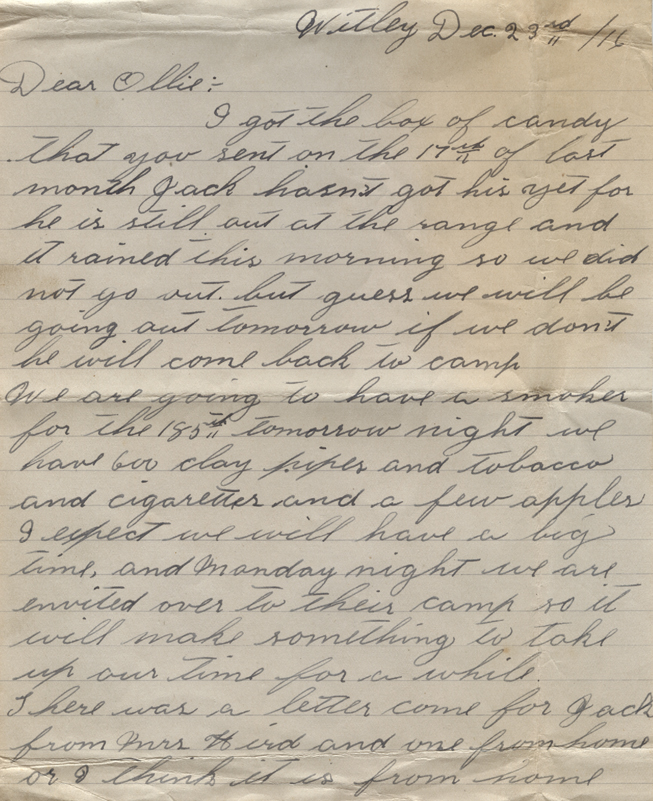 Witley Dec. 23rd /16
Dear Ollie:-
I got the box of candy
that you sent on the 17th of last
month Jack hasn't got his yet for
he is still out at the range and
it rained this morning so we did
not go out. but guess we will be
going out tomorrow if we don't
he will come back to camp
We are going to have a smoker
for the 185th tomorrow night we
have 600 clay pipes and tobacco
and cigarettes and a few apples
I expect we will have a big
time, and Monday night we are
envited over to their camp so it
will make something to take
up our time for a while
There was a letter come for Jack
from Mrs Hird and one from home
or I think it is from home